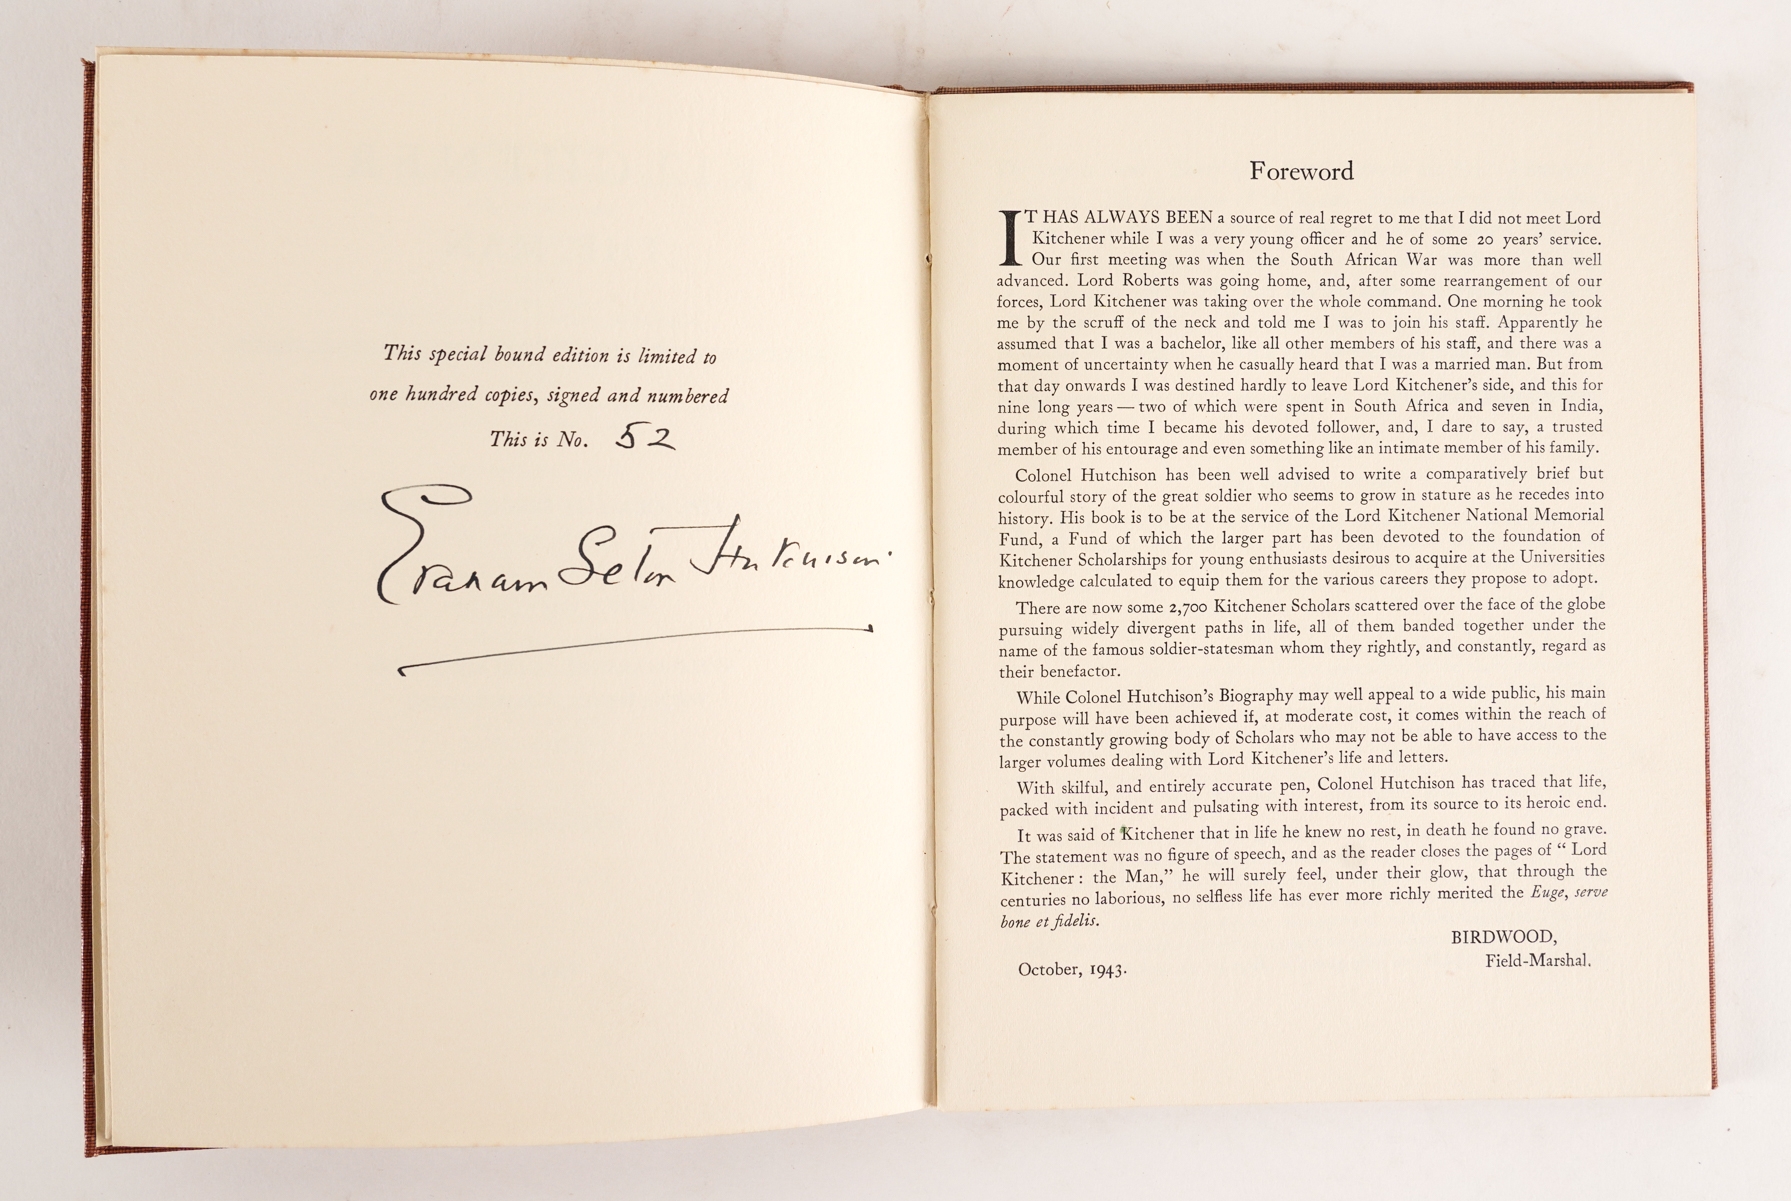 This special bound edition is limited to
one hundred copies, signed and numbered
This is No. 52
Graham Seton Hutchison
Foreword
IT HAS ALWAYS BEEN a source of real regret to me that I did not meet Lord
Kitchener while I was a very young officer and he of some 20 years' service.
Our first meeting was when the South African War was more than well
advanced. Lord Roberts was going home, and, after some rearrangement of our
forces, Lord Kitchener was taking over the whole command. One morning he took
me by the scruff of the neck and told me I was to join his staff. Apparently he
assumed that I was a bachelor, like all other members of his staff, and there was a
moment of uncertainty when he casually heard that I was a married man. But from
that day onwards I was destined hardly to leave Lord Kitchener's side, and this for
nine long years — two of which were spent in South Africa and seven in India,
during which time I became his devoted follower, and, I dare to say, a trusted
member of his entourage and even something like an intimate member of his family.
Colonel Hutchison has been well advised to write a comparatively brief but
colourful story of the great soldier who seems to grow in stature as he recedes into
history. His book is to be at the service of the Lord Kitchener National Memorial
Fund, a Fund of which the larger part has been devoted to the foundation of
Kitchener Scholarships for young enthusiasts desirous to acquire at the Universities
knowledge calculated to equip them for the various careers they propose to adopt.
There are now some 2,700 Kitchener Scholars scattered over the face of the globe
pursuing widely divergent paths in life, all of them banded together under the
name of the famous soldier-statesman whom they rightly, and constantly, regard as
their benefactor.
While Colonel Hutchison's Biography may well appeal to a wide public, his main
purpose will have been achieved if, at moderate cost, it comes within the reach of
the constantly growing body of Scholars who may not be able to have access to the
larger volumes dealing with Lord Kitchener's life and letters.
With skilful, and entirely accurate pen, Colonel Hutchison has traced that life,
packed with incident and pulsating with interest, from its source to its heroic end.
It was said of Kitchener that in life he knew no rest, in death he found no grave.
The statement was no figure of speech, and as the reader closes the pages of “ Lord
Kitchener : the Man,” he will surely feel, under their glow, that through the
centuries no laborious, no selfless life has ever more richly merited the Euge, serve
bone et fidelis.
BIRDWOOD,
Field-Marshal.
October, 1943.